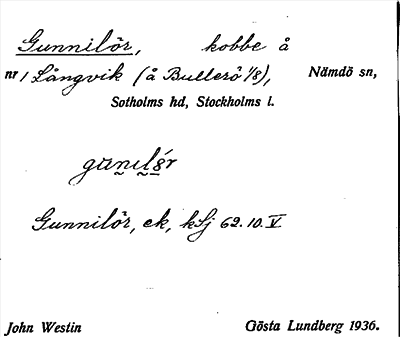 Gunnilör, kobbe å
nr 1 Långvik (å Bullerö 1/8), Nämdö sn,
Sotholms hd, Stockholms l.
Gunnilör, ek, kSj 62.10.V
John Westin Gösta Lundberg 1936.